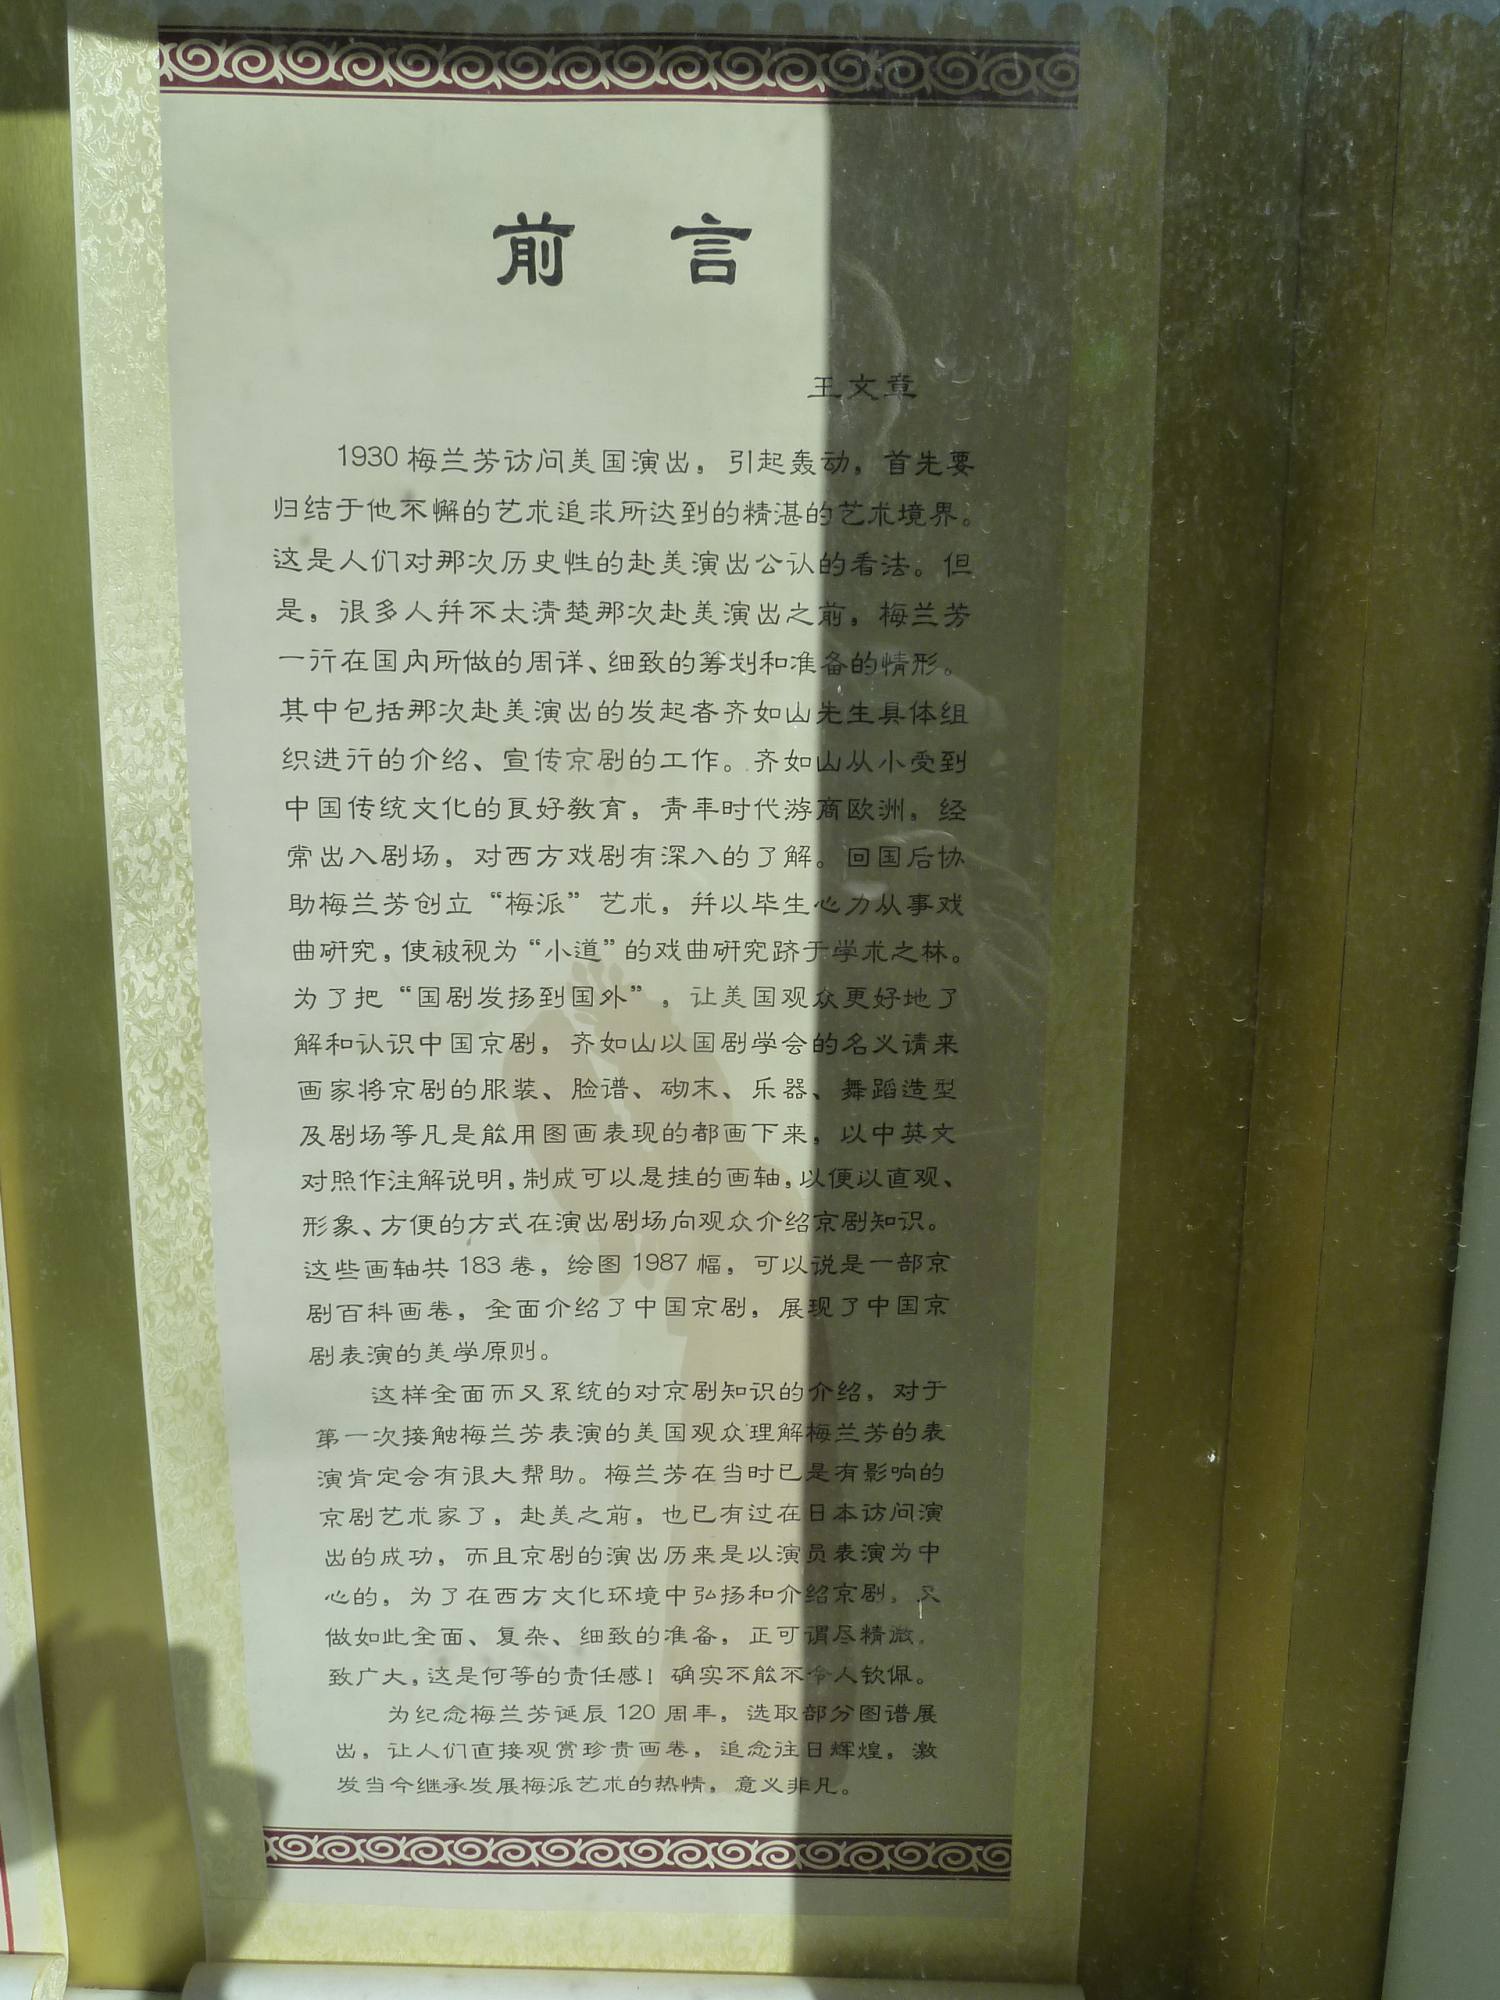 前言
王文章
1930梅兰芳访问美国演出，引起轰动，首先要
归结于他不懈的艺术追求所达到的精湛的艺术境界。
这是人们对那次历史性的赴美演出公认的看法。但
是，很多人并不太清楚那次赴美演出之前，梅兰芳
一行在国内所做的周详、细致的筹划和准备的情形。
其中包括那次赴美演出的发起者齐如山先生具体组
织进行的介绍、宣传京剧的工作。齐如山从小受到
中国传统文化的良好教育，青年时代游商欧洲，经
常出入剧场，对西方戏剧有深入的了解。回国后协
助梅兰芳创立“梅派”艺术，并以毕生心力从事戏
曲研究，使被视为“小道”的戏曲研究跻于学术之林。
为了把“国剧发扬到国外”，让美国观众更好地了
解和认识中国京剧，齐如山以国剧学会的名义请来
画家将京剧的服装、脸谱、砌末、乐器、舞蹈造型
及剧场等凡是能用图画表现的都画下来，以中英文
对照作注解说明，制成可以悬挂的画轴，以便以直观、
形象、方便的方式在演出剧场向观众介绍京剧知识。
这些画轴共183卷，绘图1987幅，可以说是一部京
剧百科画卷，全面介绍了中国京剧，展现了中国京
剧表演的美学原则。
这样全面而又系统的对京剧知识的介绍，对于
第一次接触梅兰芳表演的美国观众理解梅兰芳的表
演肯定会有很大帮助。梅兰芳在当时已是有影响的
京剧艺术家了，赴美之前，也已有过在日本访问演
出的成功，而且京剧的演出历来是以演员表演为中
心的，为了在西方文化环境中弘扬和介绍京剧，又
做如此全面、复杂、细致的准备，正可谓尽精微，
致广大，这是何等的责任感！确实不能不令人钦佩。
为纪念梅兰芳诞辰120周年，选取部分图谱展
出，让人们直接观赏珍贵画卷，追念往日辉煌，激
发当今继承发展梅派艺术的热情，意义非凡。